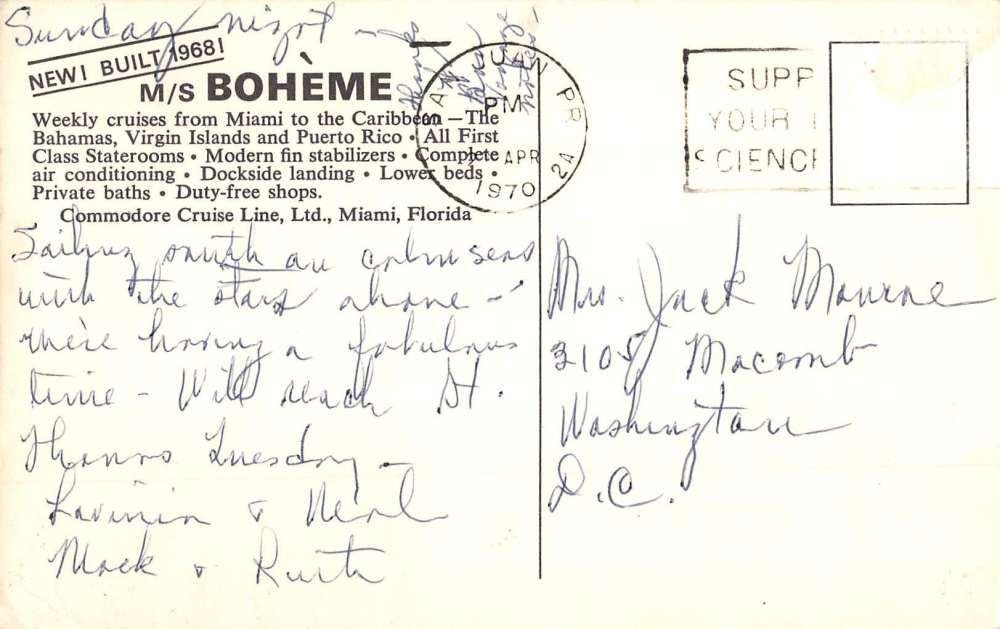 Sunday night -
NEW! BUILT 1968!
M/S BOHÈME
Weekly cruises from Miami to the Caribbean — The
Bahamas, Virgin Islands and Puerto Rico • All First
Class Staterooms • Modern fin stabilizers • Complete
air conditioning • Dockside landing • Lower beds •
Private baths • Duty-free shops.
Commodore Cruise Line, Ltd., Miami, Florida
Sailing south on calm seas
with the stars above -
we're having a fabulous
time - Will reach St.
Thomas Tuesday -
Lavinia & Neal
Mack & Ruth
Thanks
SAN JUAN PR
PM
APR
1970
SUPP
YOUR
SCIENC
Mrs. Jack
3105 Macomb
Washington
D.C.